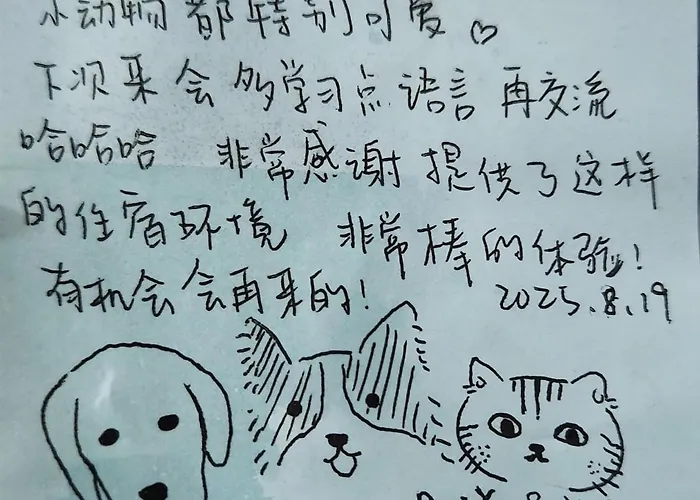 小动物都特别可爱♡
下次来会多学习点语言再交流
哈哈哈 非常感谢提供了这样
的住宿环境 非常棒的体验!
有机会会再来的! 2025.8.19